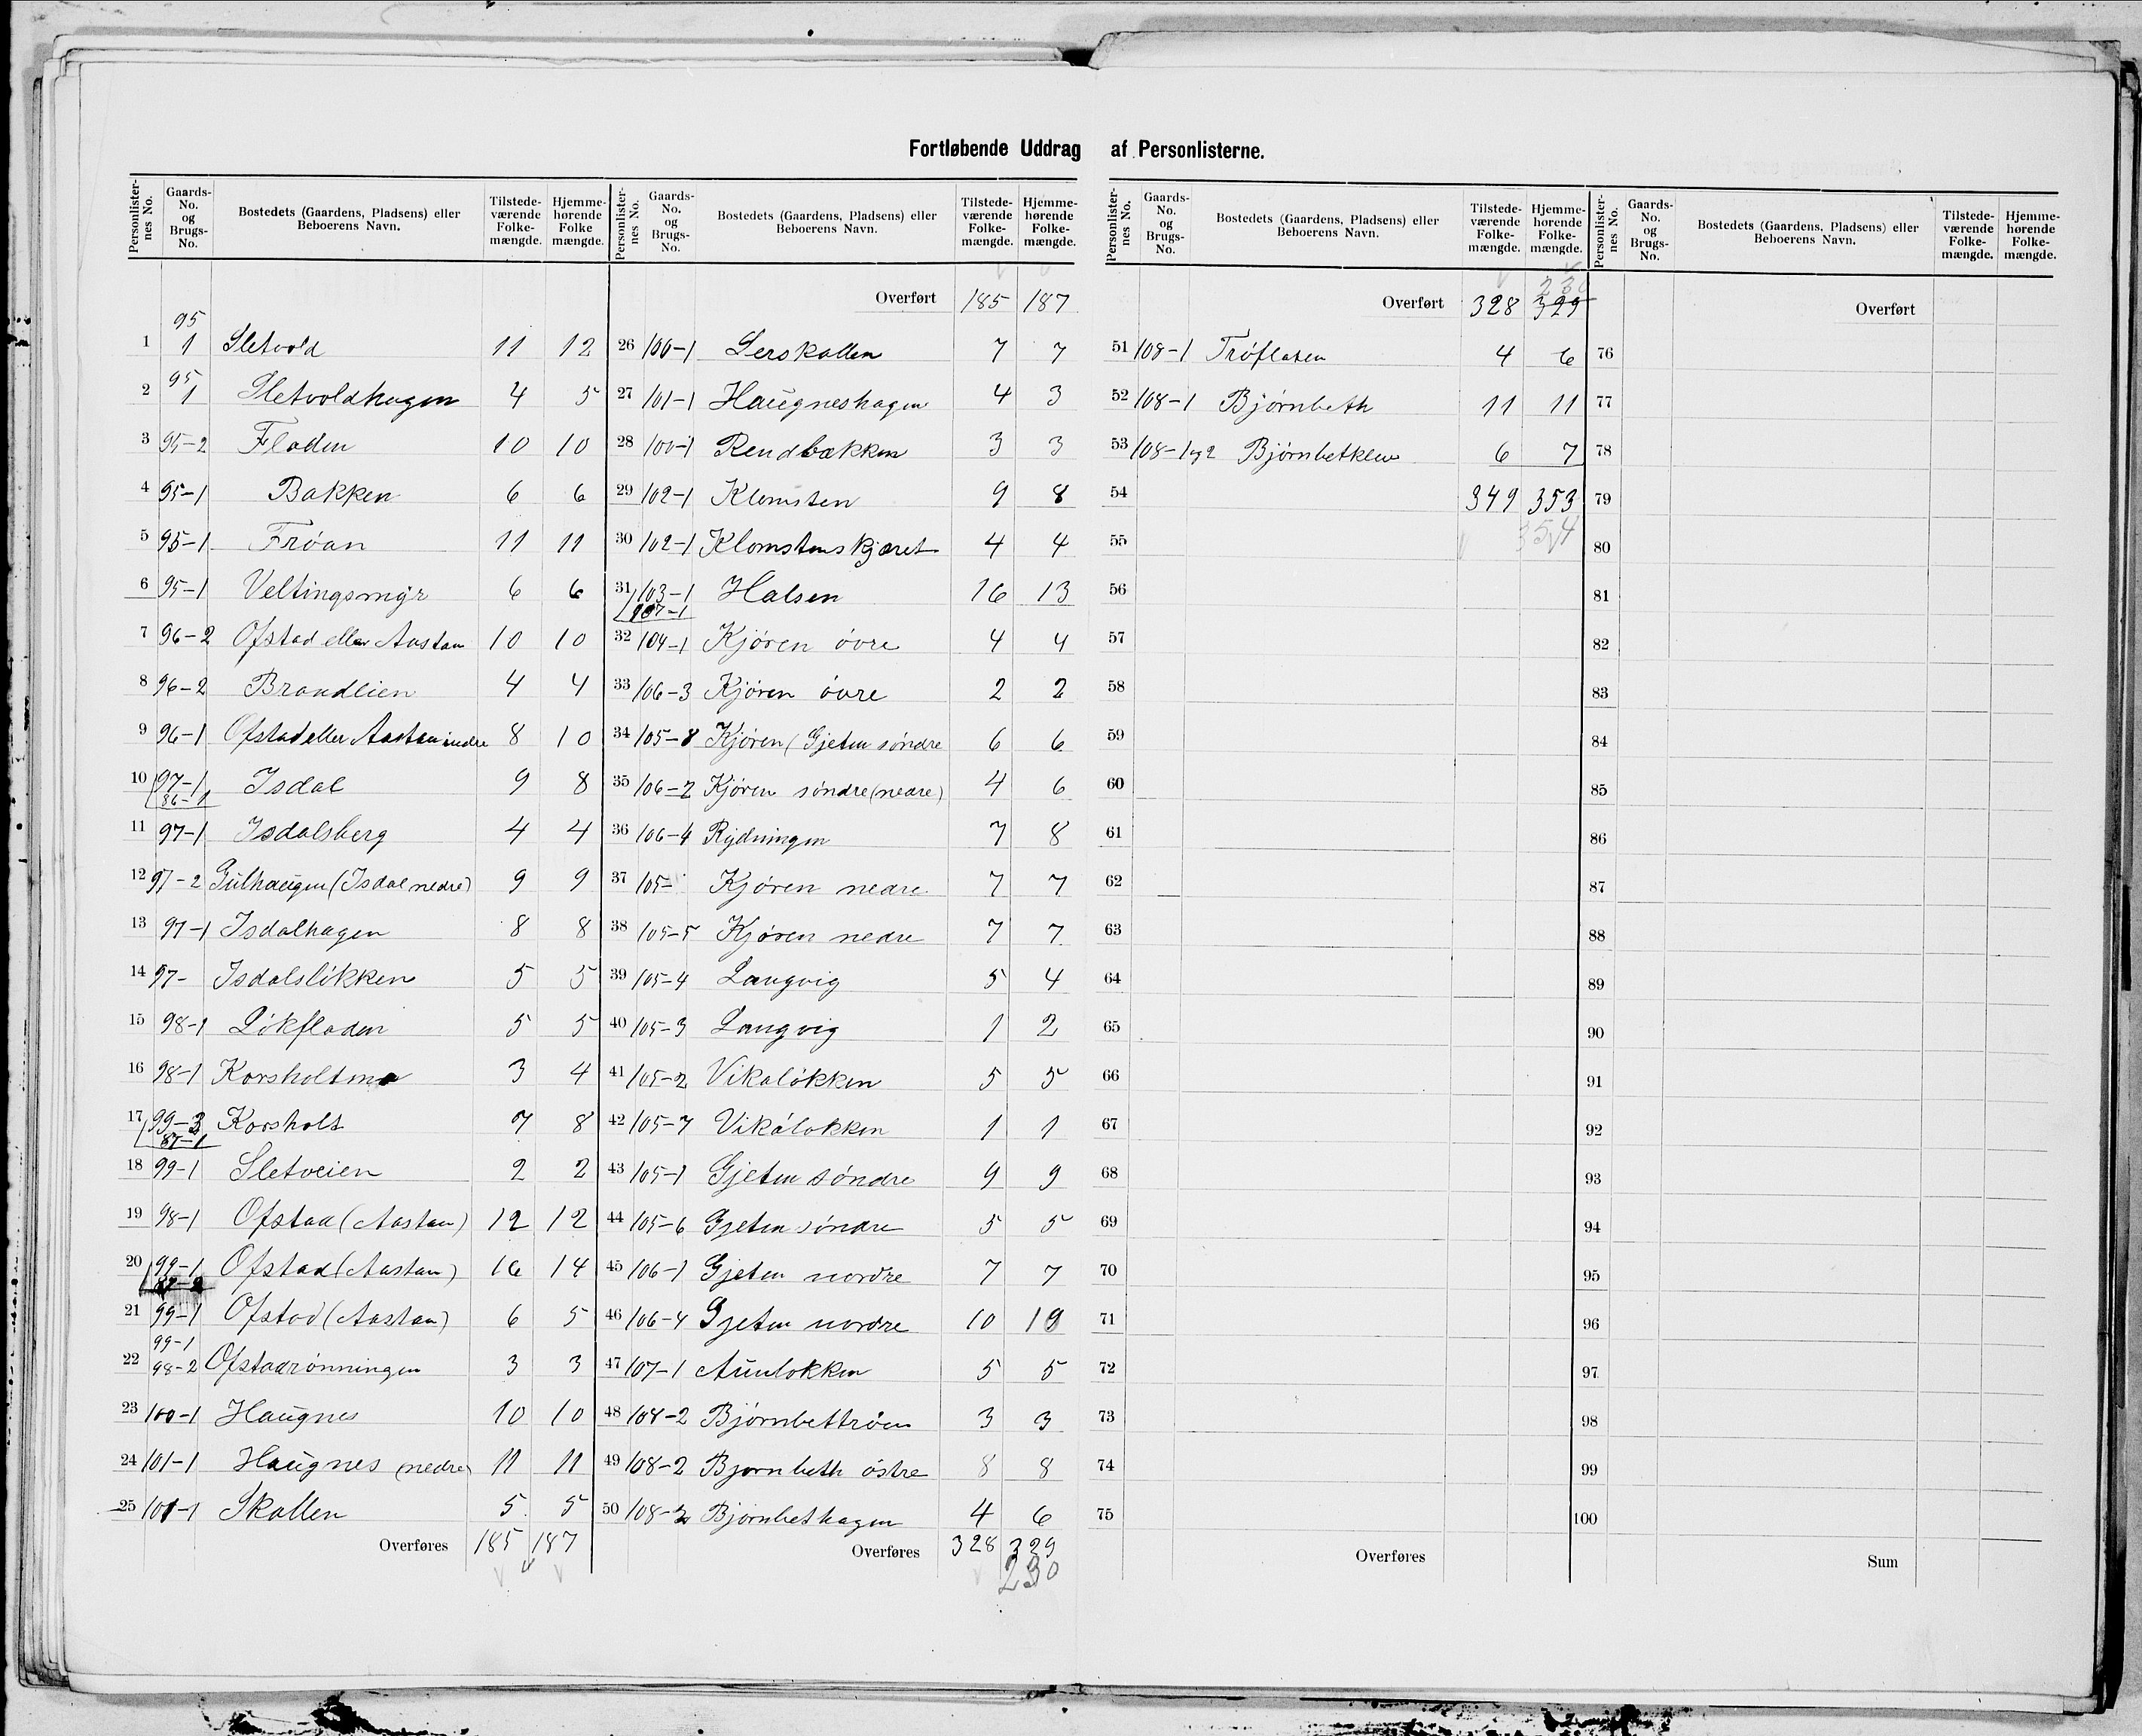 Fortløbende Uddrag af Personlisterne.
Personlister-nes No. Gaards-No. og Brugs-No. Bostedets (Gaardens, Pladsens) eller Beboerens Navn. Tilstede-værende Folke-mængde. Hjemme-hørende Folke mængde.
1 95 1 Sletvold 11 12
2 95 1 Sletvoldhagen 4 5
3 95-2 Fladen 10 10
4 95-1 Bakken 6 6
5 95-1 Frøan 11 11
6 95-1 Veltingsmyr 6 6
7 96-2 Ofstad eller Aastan 10 10
8 96-2 Brandlien 4 4
9 96-1 Ofstad eller Aastan indre 8 10
10 97-1 86-1 Isdal 9 8
11 97-1 Isdalsberg 4 4
12 97-2 Gulhaugen (Isdal nedre) 9 9
13 97-1 Isdalhagen 8 8
14 97- Isdalsløkken 5 5
15 98-1 Løkfladen 5 5
16 98-1 Korsholtmo 3 4
17 99-3 87-1 Korsholt 7 8
18 99-1 Sletveien 2 2
19 98-1 Ofstad (Aastan) 12 12
20 99-1 Ofstad (Aastan) 16 14
21 99-1 Ofstad (Aastan) 6 5
22 99-1 98-2 Ofstadrønningen 3 3
23 100-1 Haugnes 10 10
24 101-1 Haugnes (nedre) 11 11
25 101-1 Skallen 5 5
Overføres 185 187
Personlister-nes No. Gaards-No. og Brugs-No. Bostedets (Gaardens, Pladsens) eller Beboerens Navn. Tilstede-værende Folke-mængde. Hjemme-hørende Folke-mængde.
Overført 185 187
26 100-1 Lerskallen 7 7
27 101-1 Haugneshagen 4 3
28 100-1 Rendbækken 3 3
29 102-1 Klomsten 9 8
30 102-1 Klomstenskjæret 4 4
31 103-1 107-1 Halsen 16 13
32 104-1 Kjøren øvre 4 4
33 106-3 Kjøren øvre 2 2
34 105-8 Kjøren (Gjeten søndre 6 6
35 106-2 Kjøren søndre (nedre) 4 6
36 106-4 Rydningen 7 8
37 105- Kjøren nedre 7 7
38 105-5 Kjøren nedre 7 7
39 105-4 Langvig 5 4
40 105-3 Langvig 1 2
41 105-2 Vikaløkken 5 5
42 105-7 Vikaløkken 1 1
43 105-1 Gjeten søndre 9 9
44 105-6 Gjeten søndre 5 5
45 106-1 Gjeten nordre 7 7
46 106-4 Gjeten nordre 10 10
47 107-1 Aunløkken 5 5
48 108-2 Bjørnbettrøen 3 3
49 108-2 Bjørnbeth østre 8 8
50 108-2 Bjørnbethagen 4 6
Overføres 328 329
230
Personlister-nes No. Gaards-No. og Brugs-No. Bostedets (Gaardens, Pladsens) eller Beboerens Navn. Tilstede-værende Folke-mængde. Hjemme-hørende Folke-mængde.
230
Overført 328 329
51 108-1 Trøflaten 4 6
52 108-1 Bjørnbeth 11 11
53 108-1 og 2 Bjørnbetklev 6 7
54 349 353
55 354
56
57
58
59
60
61
62
63
64
65
66
67
68
69
70
71
72
73
74
75
Overføres
Personlister-nes No. Gaards-No. og Brugs-No. Bostedets (Gaardens, Pladsens) eller Beboerens Navn. Tilstede-værende Folke-mængde. Hjemme-hørende Folke-mængde.
Overført
76
77
78
79
80
81
82
83
84
85
86
87
88
89
90
91
92
93
94
95
96
97
98
99
100
Sum